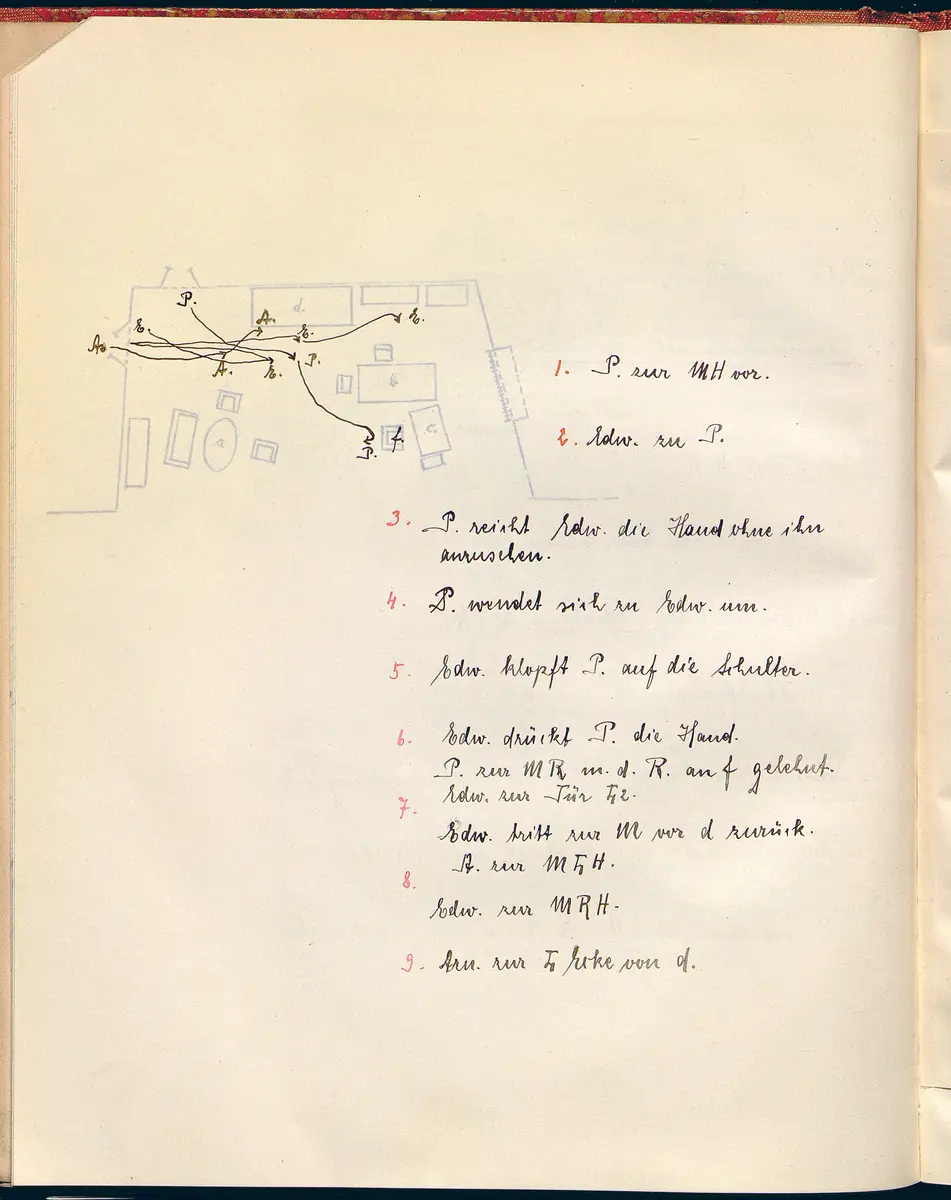 P.
A.
E.
E.
E.
An.
A.
E.
P.
P.
a
b
c
d.
f.
1. P. zur MH vor.
2. Edw. zu P.
3. P. reicht Edw. die Hand ohne ihn
anzusehen.
4. P. wendet sich zu Edw. um.
5. Edw. klopft P. auf die Schulter.
6. Edw. drückt P. die Hand.
P. zur MR m. d. R. an f gelehnt.
7. Edw. zur Tür L2.
Edw. tritt zur M vor d zurück.
A. zur MLH.
8.
Edw. zur MRH.
9. Arn. zur L Ecke von d.